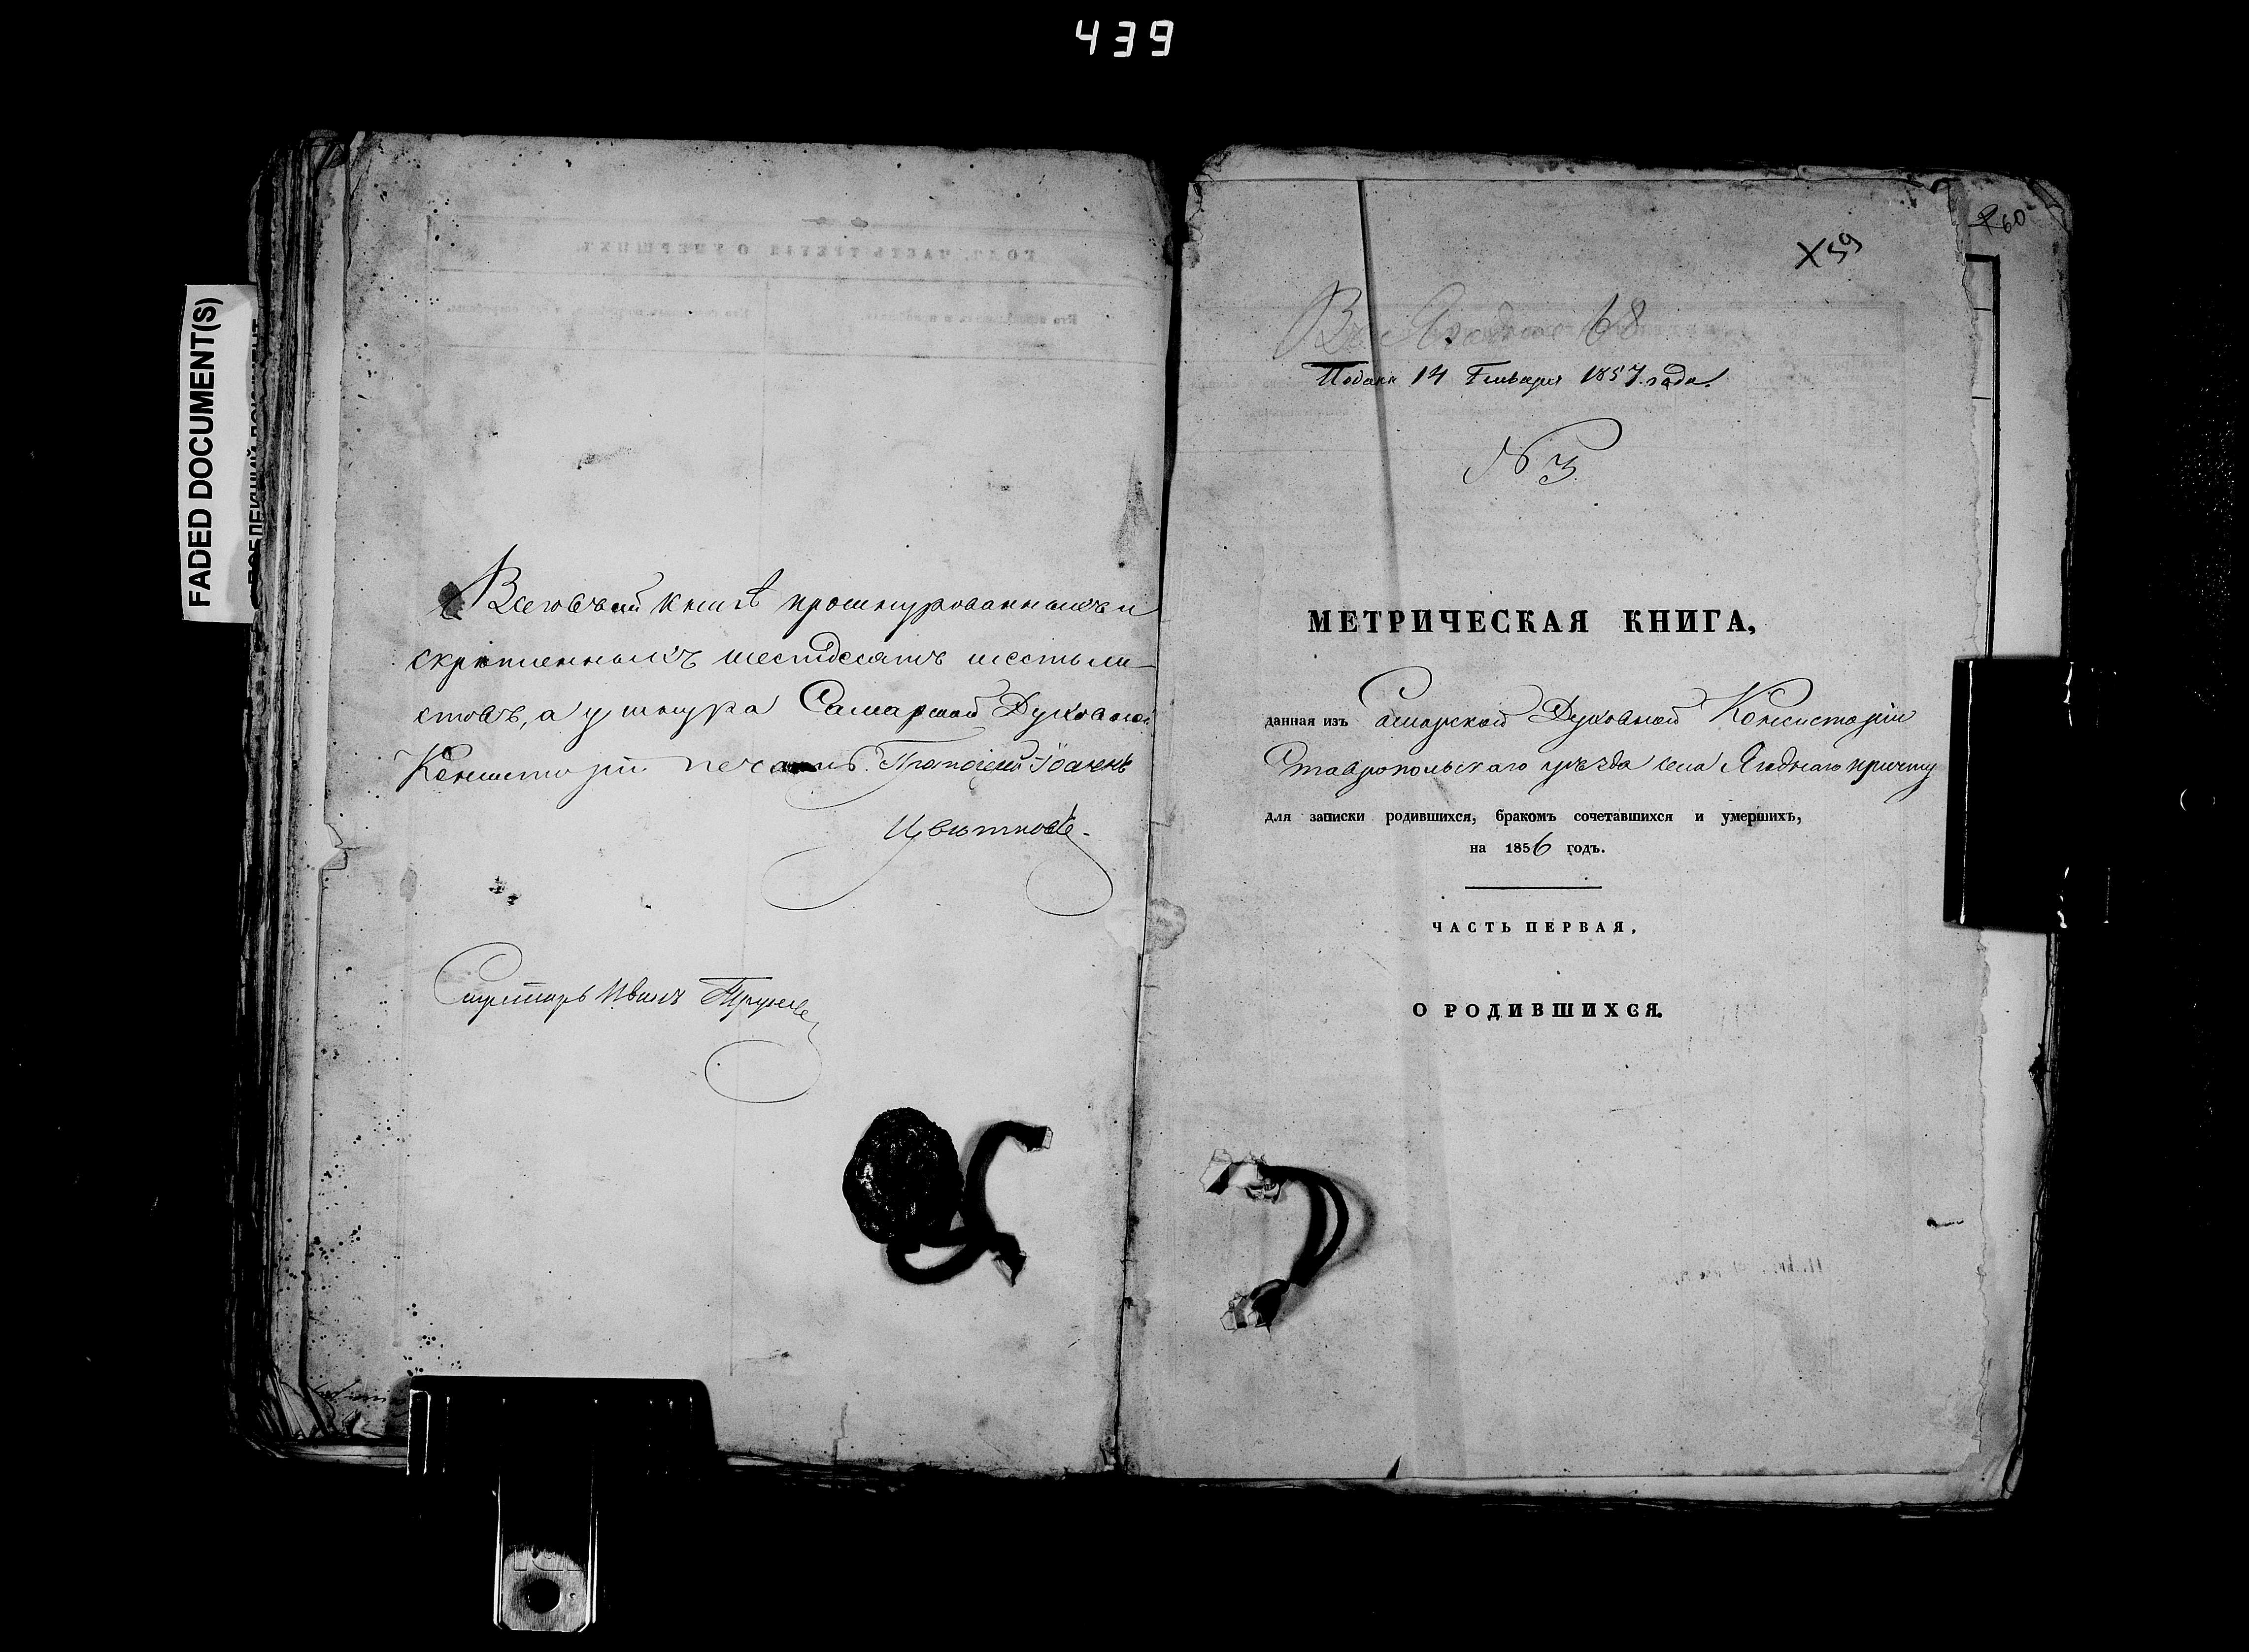 439
FADED DOCUMENT(S)
Всего въ сей книгѣ прошнурованныхъ и
скрѣпленныхъ шестдесятъ шесть ли-
стовъ, а у шнура Самарской Духовной
Консисторіи печать. Протоіерей Іоаннъ
Цвѣтковъ.
Секретарь Иванъ
60
X 59
68
Подана 14 Генваря 1857 года.
N 3.
МЕТРИЧЕСКАЯ КНИГА,
данная изъ Самарской Духовной Консисторіи
Ставропольскаго уѣзда села Ягоднаго причту
для записки родившихся, бракомъ сочетавшихся и умершихъ,
на 1856 годъ.
ЧАСТЬ ПЕРВАЯ,
О РОДИВШИХСЯ.